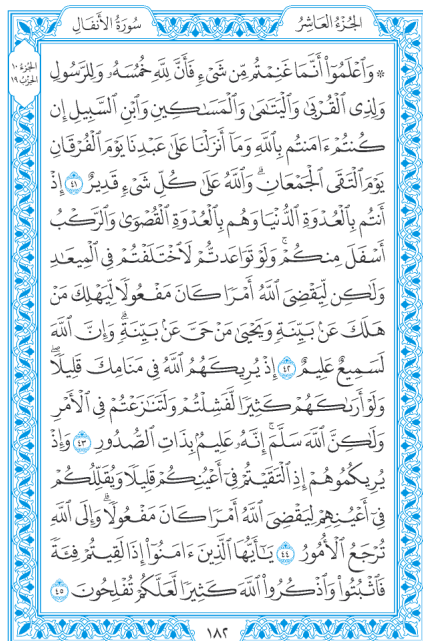 الجُزْءُ العَاشِرُ
سُورَةُ الأَنفَال
الجزء ١٠
الحزب ١٩
۞ وَٱعْلَمُوٓا۟ أَنَّمَا غَنِمْتُم مِّن شَىْءٍ فَأَنَّ لِلَّهِ خُمُسَهُۥ وَلِلرَّسُولِ
وَلِذِى ٱلْقُرْبَىٰ وَٱلْيَتَـٰمَىٰ وَٱلْمَسَـٰكِينِ وَٱبْنِ ٱلسَّبِيلِ إِن
كُنتُمْ ءَامَنتُم بِٱللَّهِ وَمَآ أَنزَلْنَا عَلَىٰ عَبْدِنَا يَوْمَ ٱلْفُرْقَانِ
يَوْمَ ٱلْتَقَى ٱلْجَمْعَانِ ۗ وَٱللَّهُ عَلَىٰ كُلِّ شَىْءٍ قَدِيرٌ ٤١ إِذْ
أَنتُم بِٱلْعُدْوَةِ ٱلدُّنْيَا وَهُم بِٱلْعُدْوَةِ ٱلْقُصْوَىٰ وَٱلرَّكْبُ
أَسْفَلَ مِنكُمْ ۚ وَلَوْ تَوَاعَدتُّمْ لَٱخْتَلَفْتُمْ فِى ٱلْمِيعَـٰدِ
وَلَـٰكِن لِّيَقْضِىَ ٱللَّهُ أَمْرًا كَانَ مَفْعُولًا لِّيَهْلِكَ مَنْ
هَلَكَ عَنۢ بَيِّنَةٍ وَيَحْيَىٰ مَنْ حَىَّ عَنۢ بَيِّنَةٍ ۗ وَإِنَّ ٱللَّهَ
لَسَمِيعٌ عَلِيمٌ ٤٢ إِذْ يُرِيكَهُمُ ٱللَّهُ فِى مَنَامِكَ قَلِيلًا ۖ
وَلَوْ أَرَىٰكَهُمْ كَثِيرًا لَّفَشِلْتُمْ وَلَتَنَـٰزَعْتُمْ فِى ٱلْأَمْرِ
وَلَـٰكِنَّ ٱللَّهَ سَلَّمَ ۗ إِنَّهُۥ عَلِيمٌۢ بِذَاتِ ٱلصُّدُورِ ٤٣ وَإِذْ
يُرِيكُمُوهُمْ إِذِ ٱلْتَقَيْتُمْ فِىٓ أَعْيُنِكُمْ قَلِيلًا وَيُقَلِّلُكُمْ
فِىٓ أَعْيُنِهِمْ لِيَقْضِىَ ٱللَّهُ أَمْرًا كَانَ مَفْعُولًا ۗ وَإِلَى ٱللَّهِ
تُرْجَعُ ٱلْأُمُورُ ٤٤ يَـٰٓأَيُّهَا ٱلَّذِينَ ءَامَنُوٓا۟ إِذَا لَقِيتُمْ فِئَةً
فَٱثْبُتُوا۟ وَٱذْكُرُوا۟ ٱللَّهَ كَثِيرًا لَّعَلَّكُمْ تُفْلِحُونَ ٤٥
١٨٢